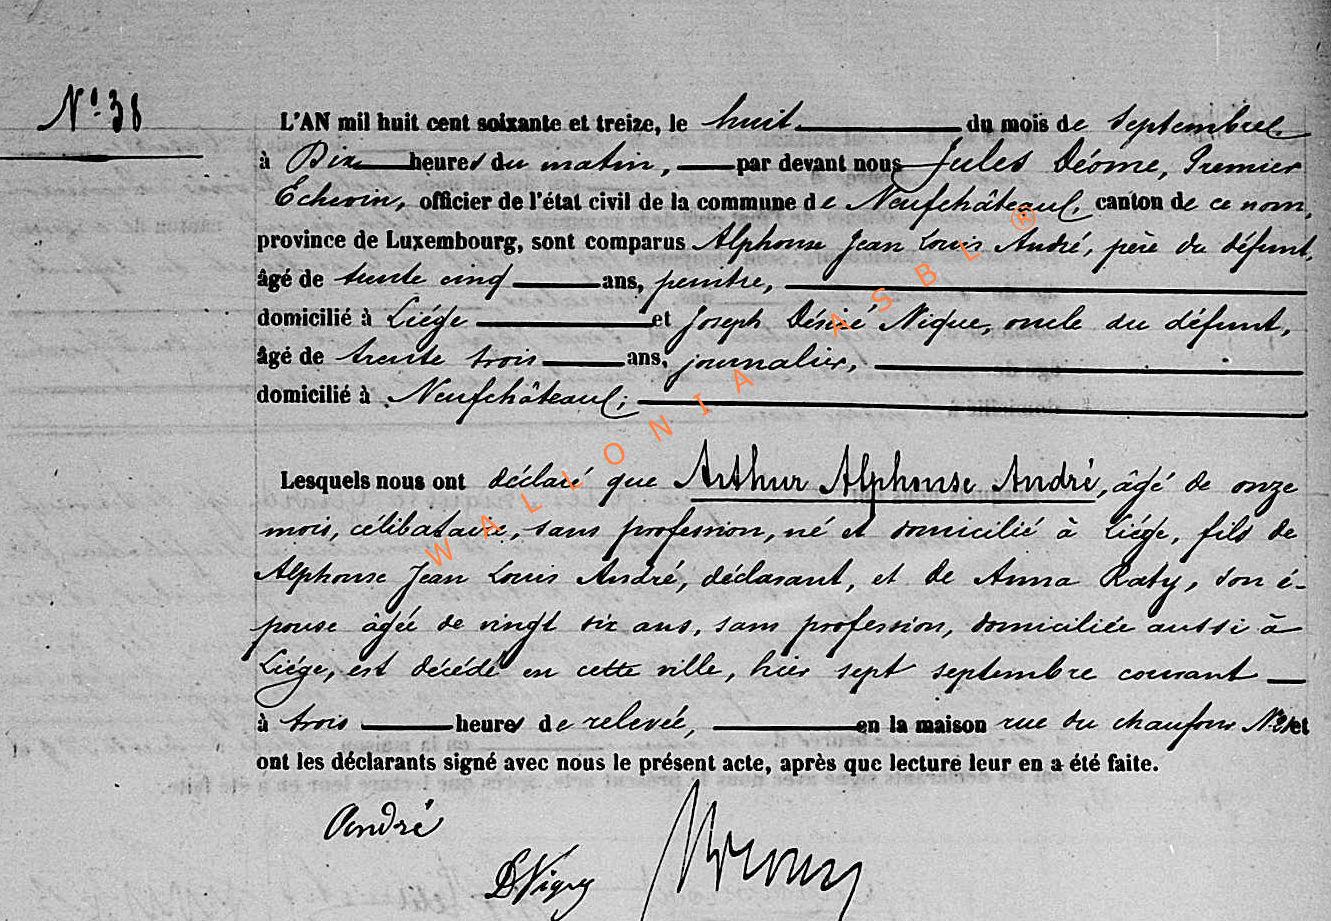 N° 38
L'AN mil huit cent soixante et treize, le huit du mois de Septembre
à Dix heures du matin, par devant nous Jules Déome, Premier
Echevin, officier de l'état civil de la commune de Neufchâteau, canton de ce nom,
province de Luxembourg, sont comparus Alphonse Jean Louis André, père du défunt,
âgé de trente cinq ans, peintre,
domicilié à Liége et Joseph Désiré Nique, oncle du défunt,
âgé de trente trois ans, journalier,
domicilié à Neufchâteau;
Lesquels nous ont déclaré que Arthur Alphonse André, âgé de onze
mois, célibataire, sans profession, né et domicilié à Liége, fils de
Alphonse Jean Louis André, déclarant, et de Anna Raty, son é-
pouse âgée de vingt six ans, sans profession, domiciliée aussi à
Liége, est décédé en cette ville, hier sept septembre courant
à trois heures de relevée, en la maison rue du chaufour et
ont les déclarants signé avec nous le présent acte, après que lecture leur en a été faite.
André
WALLONIA ASBL ®